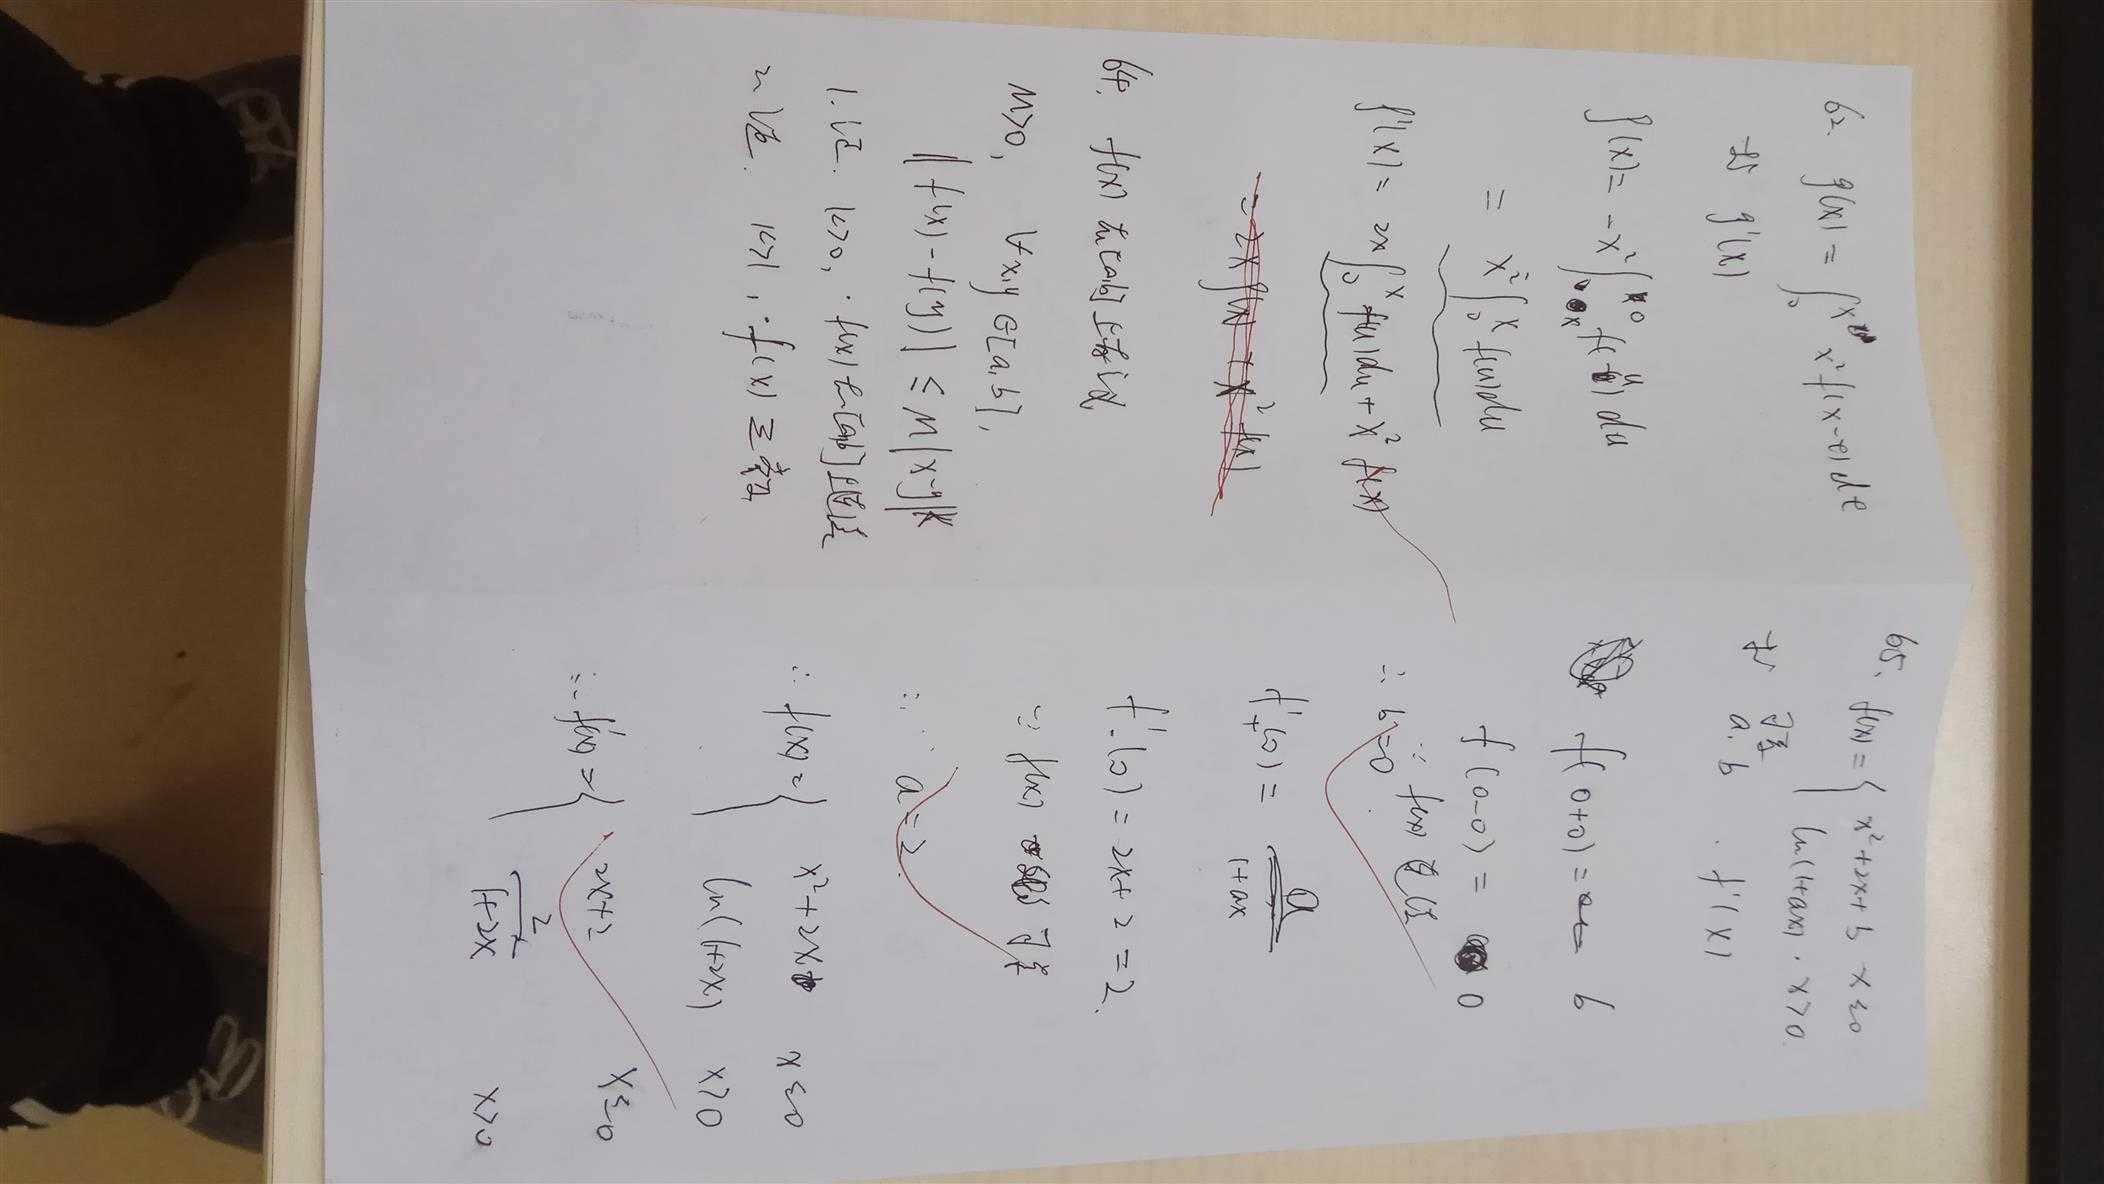 62. g(x) = ∫₀ˣ x² f(x-t) dt
求 g'(x)
g'(x) = -x² ∫ₓ⁰ f(u) du
= x² ∫₀ˣ f(u) du
g'(x) = 2x ∫₀ˣ f(u) du + x² f(x)
64. f(x) 在[a,b]上有定义
M>0, ∀x,y∈[a,b],
|f(x) - f(y)| ≤ M|x-y|ᵏ
1. 证. k>0, f(x) 在[a,b]上连续
2. 证. k>1, f(x) ≡ 常数
65. f(x) = { x²+2x+b x≤0
ln(1+ax). x>0.
可导
求 a, b . f'(x)
f(0+0) = b
f(0-0) = 0
∵ f(x) 连续
∴ b=0.
f'₊(0) = a/(1+ax)
f'₋(0) = 2x+2 = 2.
∵ f(x) 可导
∴ a=2.
∴ f(x) = { x²+2x x≤0
ln(1+2x) x>0
∴ f'(x) = { 2x+2 x≤0
2/(1+2x) x>0